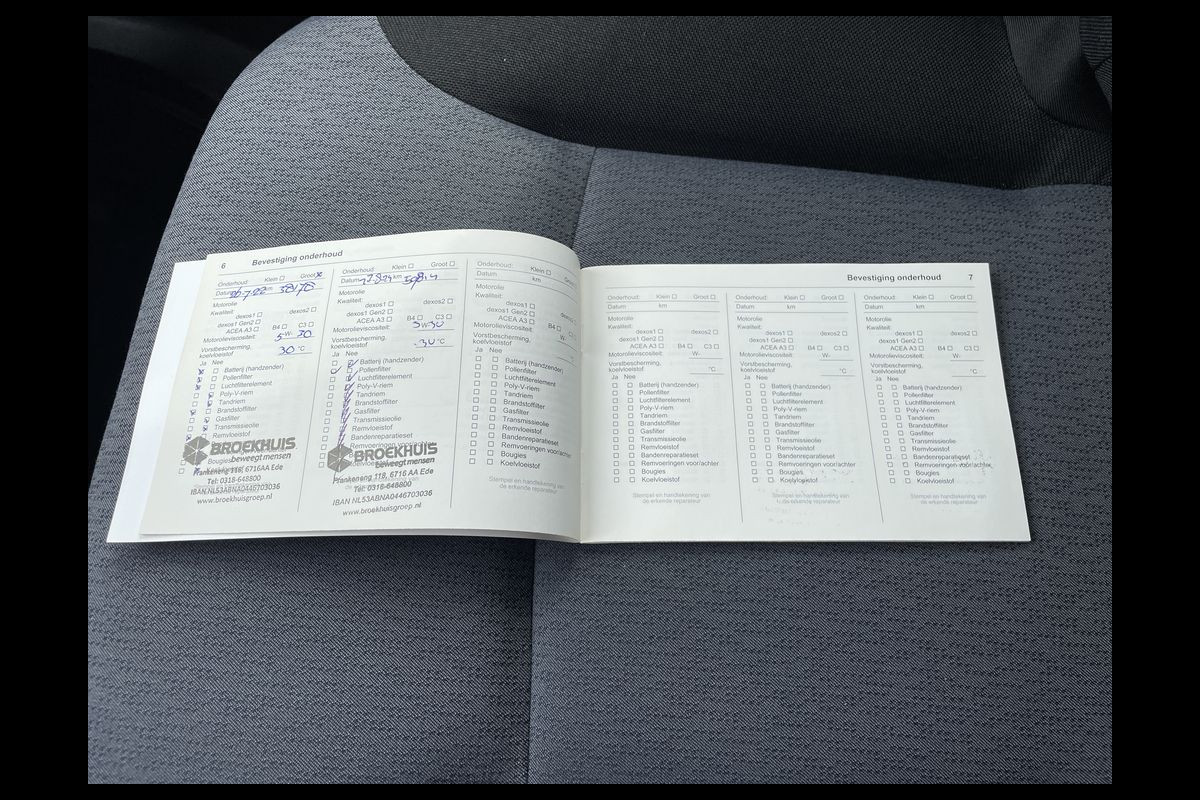 6 Bevestiging onderhoud
Onderhoud: Klein Groot
Datum km
Motorolie
Kwaliteit:
dexos1 dexos2
dexos1 Gen2
ACEA A3 B4 C3
Motorolieviscositeit: 5-W-30
Vorstbescherming,
koelvloeistof 30 °C
Ja Nee
Batterij (handzender)
Pollenfilter
Luchtfilterelement
Poly-V-riem
Tandriem
Brandstoffilter
Gasfilter
Transmissieolie
Remvloeistof
BROEKHUIS
beweegt mensen
Bougies
Frankeneng 118, 6716AA Ede
Tel: 0318-648800
IBAN NL53ABNA0446703036
www.broekhuisgroep.nl
Onderhoud: Klein Groot
Datum km
Motorolie
Kwaliteit:
dexos1 dexos2
dexos1 Gen2
ACEA A3 B4 C3
Motorolieviscositeit: 5 W-30
Vorstbescherming,
koelvloeistof -30 °C
Ja Nee
Batterij (handzender)
Pollenfilter
Luchtfilterelement
Poly-V-riem
Tandriem
Brandstoffilter
Gasfilter
Transmissieolie
Remvloeistof
Bandenreparatieset
Remvoeringen voor/achter
BROEKHUIS
beweegt mensen
Frankeneng 118, 6716 AA Ede
Tel: 0318-648800
IBAN NL53ABNA0446703036
www.broekhuisgroep.nl
Onderhoud: Klein Groot
Datum km
Motorolie
Kwaliteit:
dexos1
dexos1 Gen2
ACEA A3 B4
Motorolieviscositeit: W-
Vorstbescherming,
koelvloeistof
Ja Nee
Batterij (handzender)
Pollenfilter
Luchtfilterelement
Poly-V-riem
Tandriem
Brandstoffilter
Gasfilter
Transmissieolie
Remvloeistof
Bandenreparatieset
Remvoeringen voor/achter
Bougies
Koelvloeistof
Stempel en handtekening van
de erkende reparateur
Bevestiging onderhoud 7
Onderhoud: Klein Groot
Datum km
Motorolie
Kwaliteit:
dexos1 dexos2
dexos1 Gen2
ACEA A3 B4 C3
Motorolieviscositeit: W-
Vorstbescherming,
koelvloeistof °C
Ja Nee
Batterij (handzender)
Pollenfilter
Luchtfilterelement
Poly-V-riem
Tandriem
Brandstoffilter
Gasfilter
Transmissieolie
Remvloeistof
Bandenreparatieset
Remvoeringen voor/achter
Bougies
Koelvloeistof
Stempel en handtekening van
de erkende reparateur
Onderhoud: Klein Groot
Datum km
Motorolie
Kwaliteit:
dexos1 dexos2
dexos1 Gen2
ACEA A3 B4 C3
Motorolieviscositeit: W-
Vorstbescherming,
koelvloeistof °C
Ja Nee
Batterij (handzender)
Pollenfilter
Luchtfilterelement
Poly-V-riem
Tandriem
Brandstoffilter
Gasfilter
Transmissieolie
Remvloeistof
Bandenreparatieset
Remvoeringen voor/achter
Bougies
Koelvloeistof
Stempel en handtekening van
de erkende reparateur
Onderhoud: Klein Groot
Datum km
Motorolie
Kwaliteit:
dexos1 dexos2
dexos1 Gen2
ACEA A3 B4 C3
Motorolieviscositeit: W-
Vorstbescherming,
koelvloeistof °C
Ja Nee
Batterij (handzender)
Pollenfilter
Luchtfilterelement
Poly-V-riem
Tandriem
Brandstoffilter
Gasfilter
Transmissieolie
Remvloeistof
Bandenreparatieset
Remvoeringen voor/achter
Bougies
Koelvloeistof
Stempel en handtekening van
de erkende reparateur